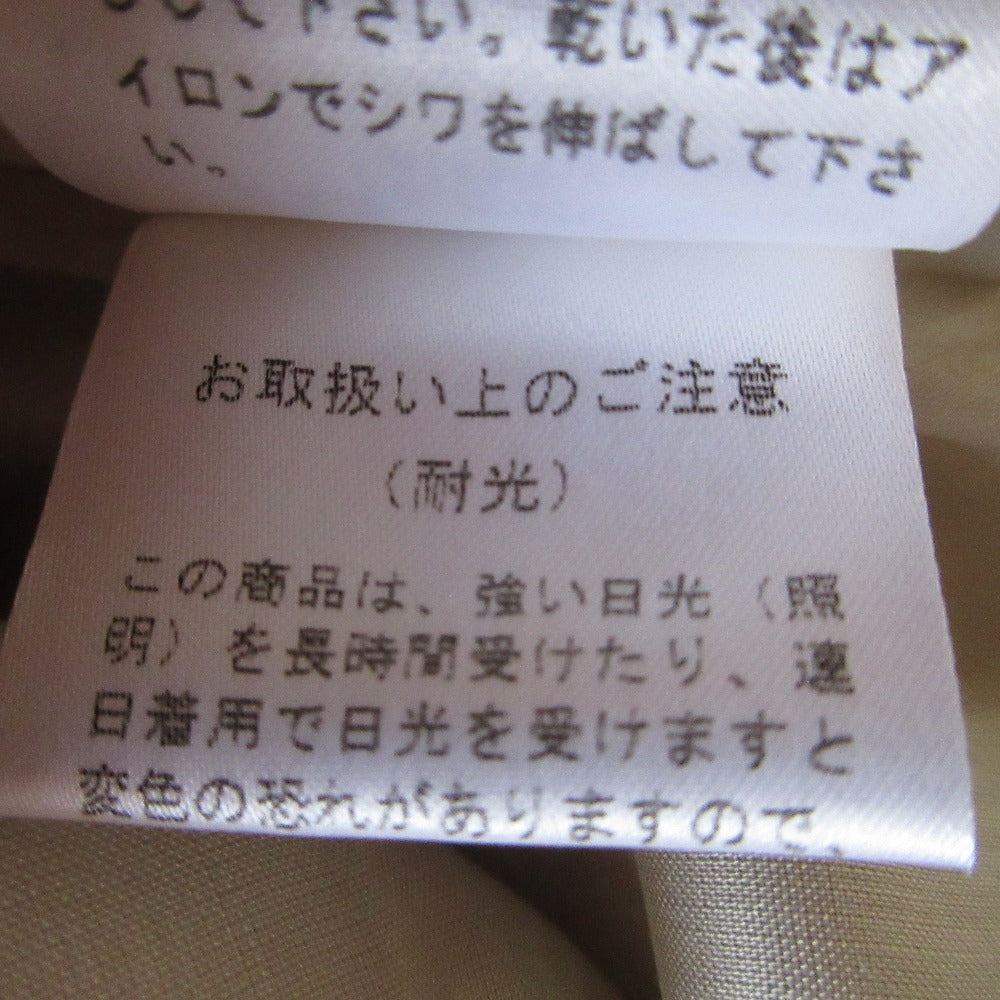 して下さい。乾いた後はア
イロンでシワを伸ばして下さ
い。
お取扱い上のご注意
（耐光）
この商品は、強い日光（照
明）を長時間受けたり、連
日着用で日光を受けますと
変色の恐れがありますので、